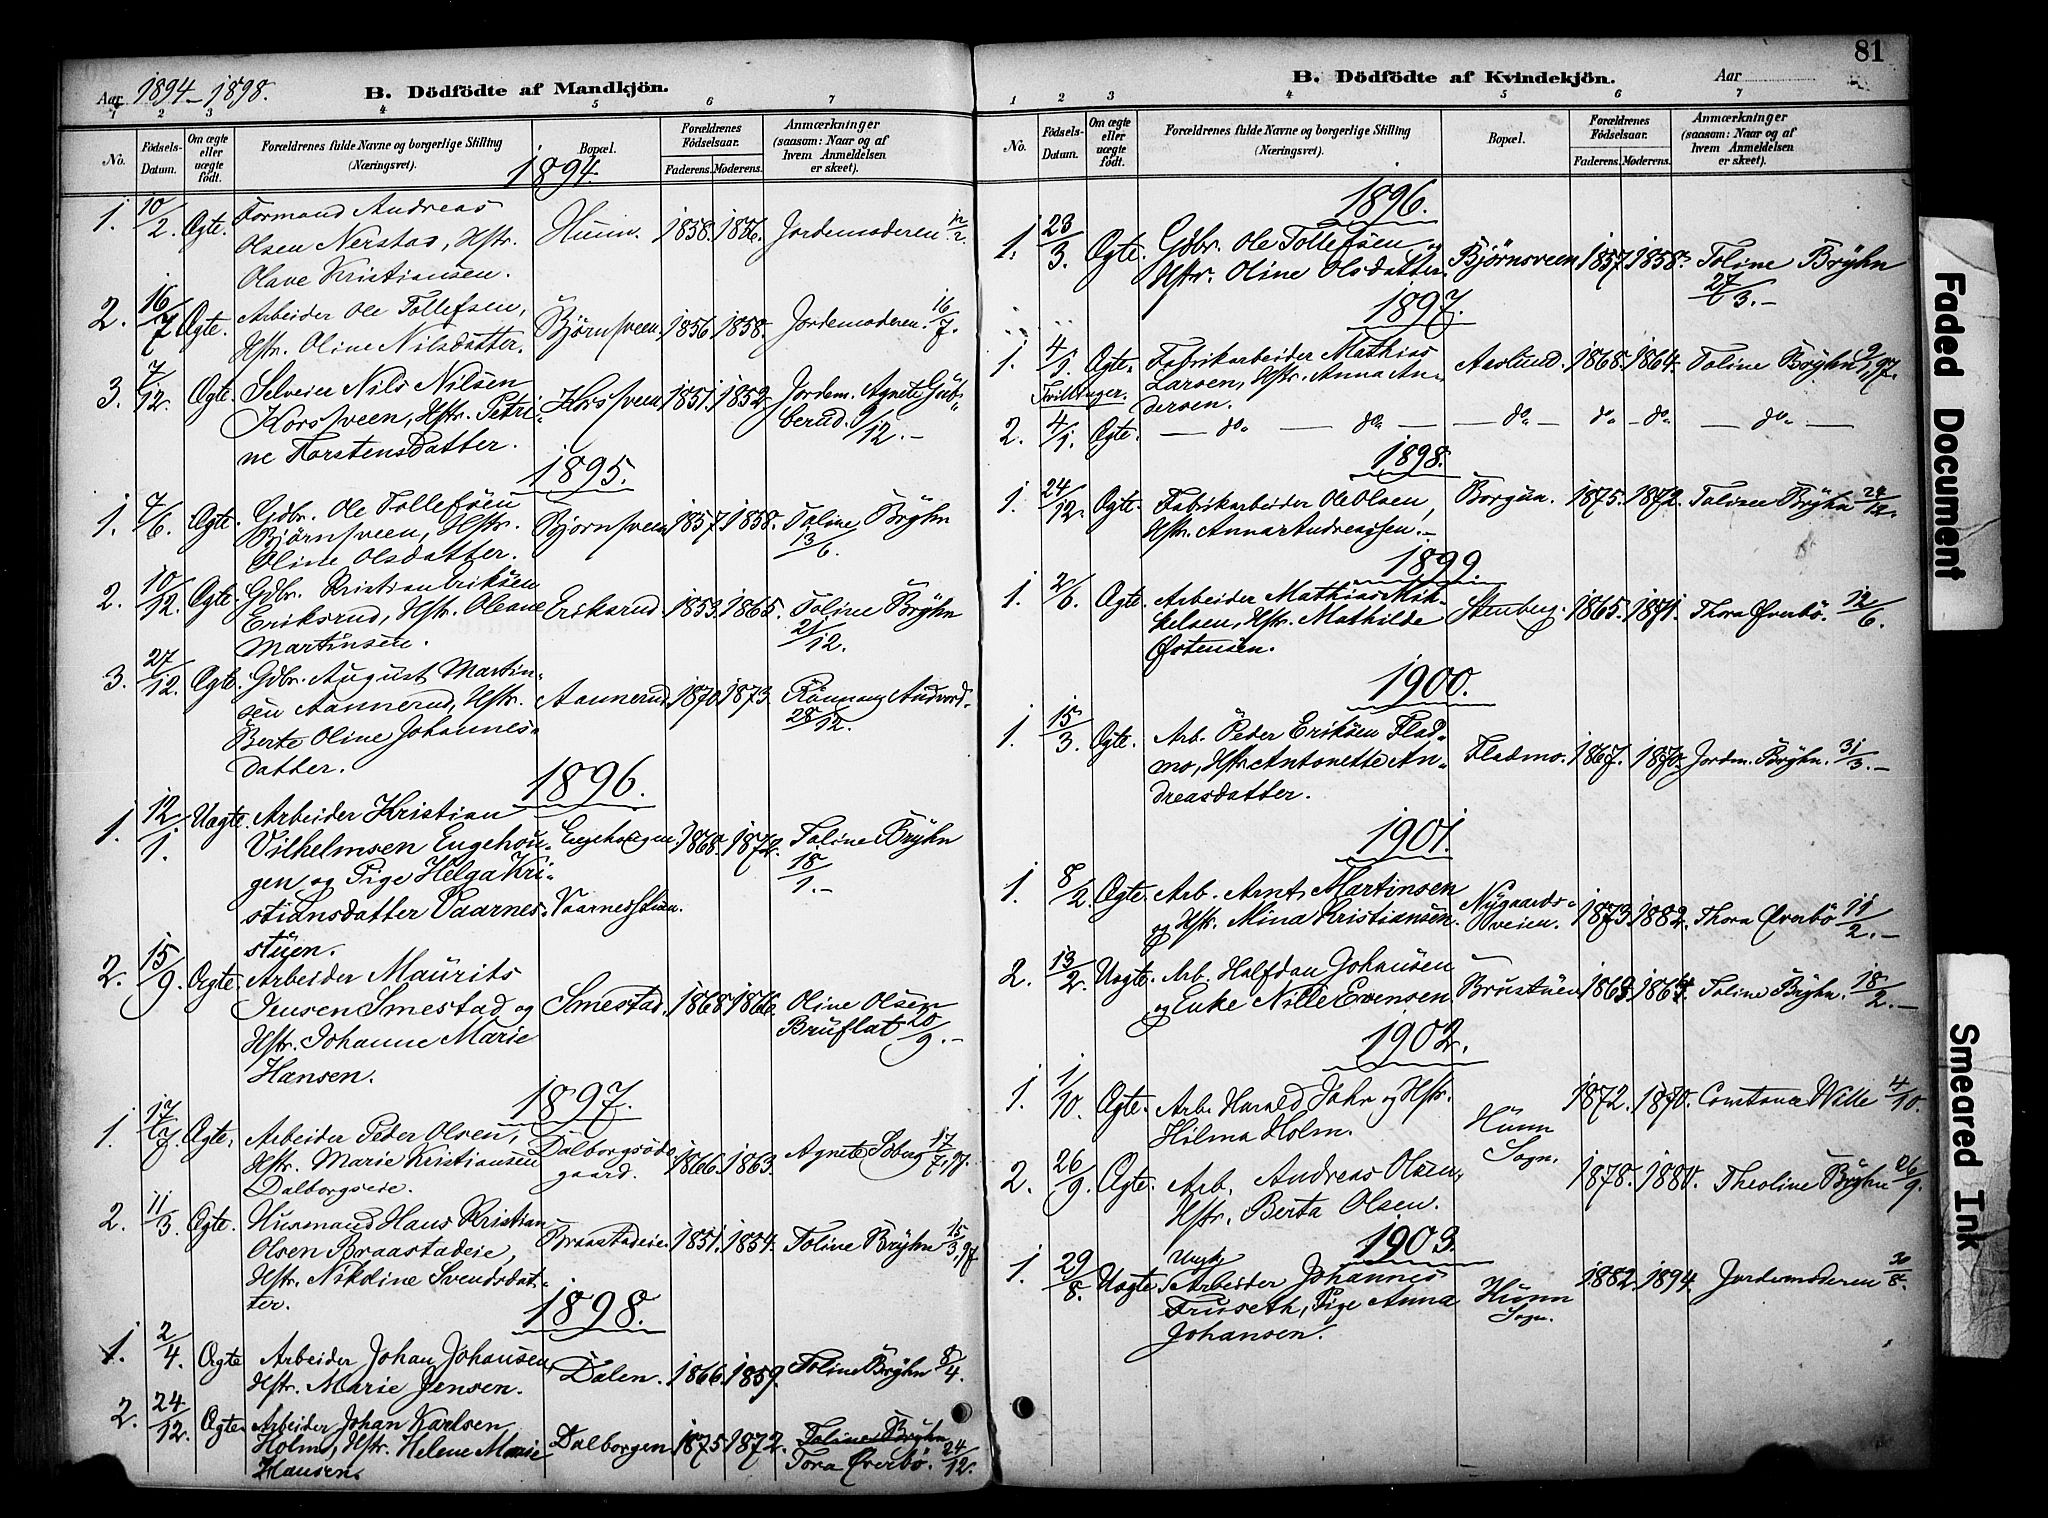 Aar 1894-1898.
B. Dödfödte af Mandkjön.
1 2 3 4 5 6 7
No.
Födsels-Datum.
Om ægte eller uægte født.
Forældrenes fulde Navne og borgerlige Stilling (Næringsvei).
Bopæl.
Forældrenes Födselsaar.
Faderens. Moderens.
Anmærkninger (saasom: Naar og af hvem Anmeldelsen er skeet).
1894.
1. 10/2. Ægte. Formand Andreas
Olsen Nerstad, Hstr. Hunn. 1858. 1856. Jordemoderen 12/2.
Olave Kristiansen.
2. 16/7 Ægte. Arbeider Ole Tollefsen,
Hstr. Oline Nilsdatter. Bjørnsveen. 1856. 1858. Jordemoderen. 16/7.
3. 7/12. Ægte. Selveier Nils Nilsen
Korsveen, Hstr. Petri- Korsveen 1851. 1852. Jordem. Agnete Gub-
ne Torstensdatter. berud. 9/12.-
1895.
1. 7/6. Ægte. Gdbr. Ole Tollefsen
Bjørnsveen, Hstr. Bjørnsveen 1857. 1858. Toline Bryhn
Oline Olsdatter. 13/6.
2. 10/12. Ægte. Gdbr. Kristian Eriksen
Eriksrud, Hstr. Oleane Eriksrud. 1853. 1865. Toline Bryhn
Martinsen. 21/12.
3. 27/12. Ægte. Gdbr. August Martin-
sen Aannerud, Hstr. Aannerud. 1870. 1873. Rønnaug Andvord.
Berte Oline Johannes- 28/12.
datter.
1896.
1. 12/1. Uægte. Arbeider Kristian
Vilhelmsen Engehou- Engehougen. 1868. 1872. Toline Bryhn
gen og Pige Helga Kri- 18/1.-
stiansdatter Vaarnes- Vaarnesstuen.
stuen.
2. 15/9. Ægte. Arbeider Maurits
Jensen Smestad og Smestad. 1868. 1866. Oline Olsen
Hstr. Johanne Marie Bruflat 20/9.-
Hansen.
1897.
1. 17/7. Ægte. Arbeider Peder Olsen, Dalborgsøde-
Hstr. Marie Kristiansen gaard. 1866. 1863. Agnete 17/7.97.
Dalborgseie.
2. 11/3. Ægte. Husmand Hans Kristian
Olsen Braastadeie, Braastadeie. 1851. 1854. Toline Bryhn 15/3.97
Hstr. Nikoline Svendsdat-
ter.
1898.
1. 2/4. Ægte Arbeider Johan Johansen,
Hstr. Marie Jensen. Dalen. 1866. 1859. Toline Bryhn 8/4.
2. 24/12. Ægte. Arbeider Johan Karlsen
Holm, Hstr. Helene Marie Dalborgen 1875. 1872. Toline Bryhn
Hansen. Tora Øverbö. 24/12.
81
B. Dödfödte af Kvindekjön.
Aar
1 2 3 4 5 6 7
No.
Födsels-Datum.
Om ægte eller uægte födt.
Forældrenes fulde Navne og borgerlige Stilling (Næringsvei).
Bopæl.
Forældrenes Födselsaar.
Faderens. Moderens.
Anmærkninger (saasom: Naar og af hvem Anmeldelsen er skeet).
1896.
1. 23/3. Ægte. Gdbr. Ole Tollefsen og
Hstr. Oline Olsdatter. Bjørnsveen 1857. 1858. Toline Bryhn
27/3.-
1897.
1. 4/1. Ægte. Fabrikarbeider Mathias
Larsen, Hstr. Anna An- Aaslund. 1868. 1864. Toline Bryhn 9/1.97.
Tvillinger. dersen.
2. 4/1. Ægte. - do - do - - do - do - do - - do -
1898.
1. 24/12. Ægte. Fabrikarbeider Ole Olsen, Borgun. 1875. 1872. Toline Bryhn 24/12.
Hstr. Anna Andreassen.-
1899.
1. 2/6. Ægte. Arbeider Mathias Mik-
kelsen, Hstr. Mathilde Stenberg. 1865. 1871. Thora Øverbö. 12/6.
Østensen.
1900.
1. 15/3. Ægte. Arb. Peder Eriksen Flad-
mo, Hstr. Antonette An- Fladmo. 1867. 1870. Jordm. Bryhn. 31/3.-
dreasdatter.
1901.
1. 8/2. Ægte. Arb. Arnt Martinsen Nygaards-
og Hstr. Mina Kristiansen. veien. 1873. 1882. Thora Øverbö 11/2.-
2. 13/2. Uægte. Arb. Halfdan Johansen
og Enke Nille Evensen Brustuen 1863. Toline Bryhn. 18/2.-
1902.
1. 1/10. Ægte. Arb. Harald Jahr og Hstr. 1872. 1870. Constance Wille 4/10.
Hilma Holm. Hunn
Sogn.
2. 26/9. Ægte. Arb. Andreas Olsen, 1878. 1880. Theoline Bryhn 26/9.
Hstr. Berta Olsen.
1903.
1. 29/8. Uægte. Ungk.
Arbeider Johannes 1882. 1894. Jordemoderen 30/8.
Fruseth, Pige Anna Hunn
Johansen. Sogn.
Faded Document
Smeared Ink